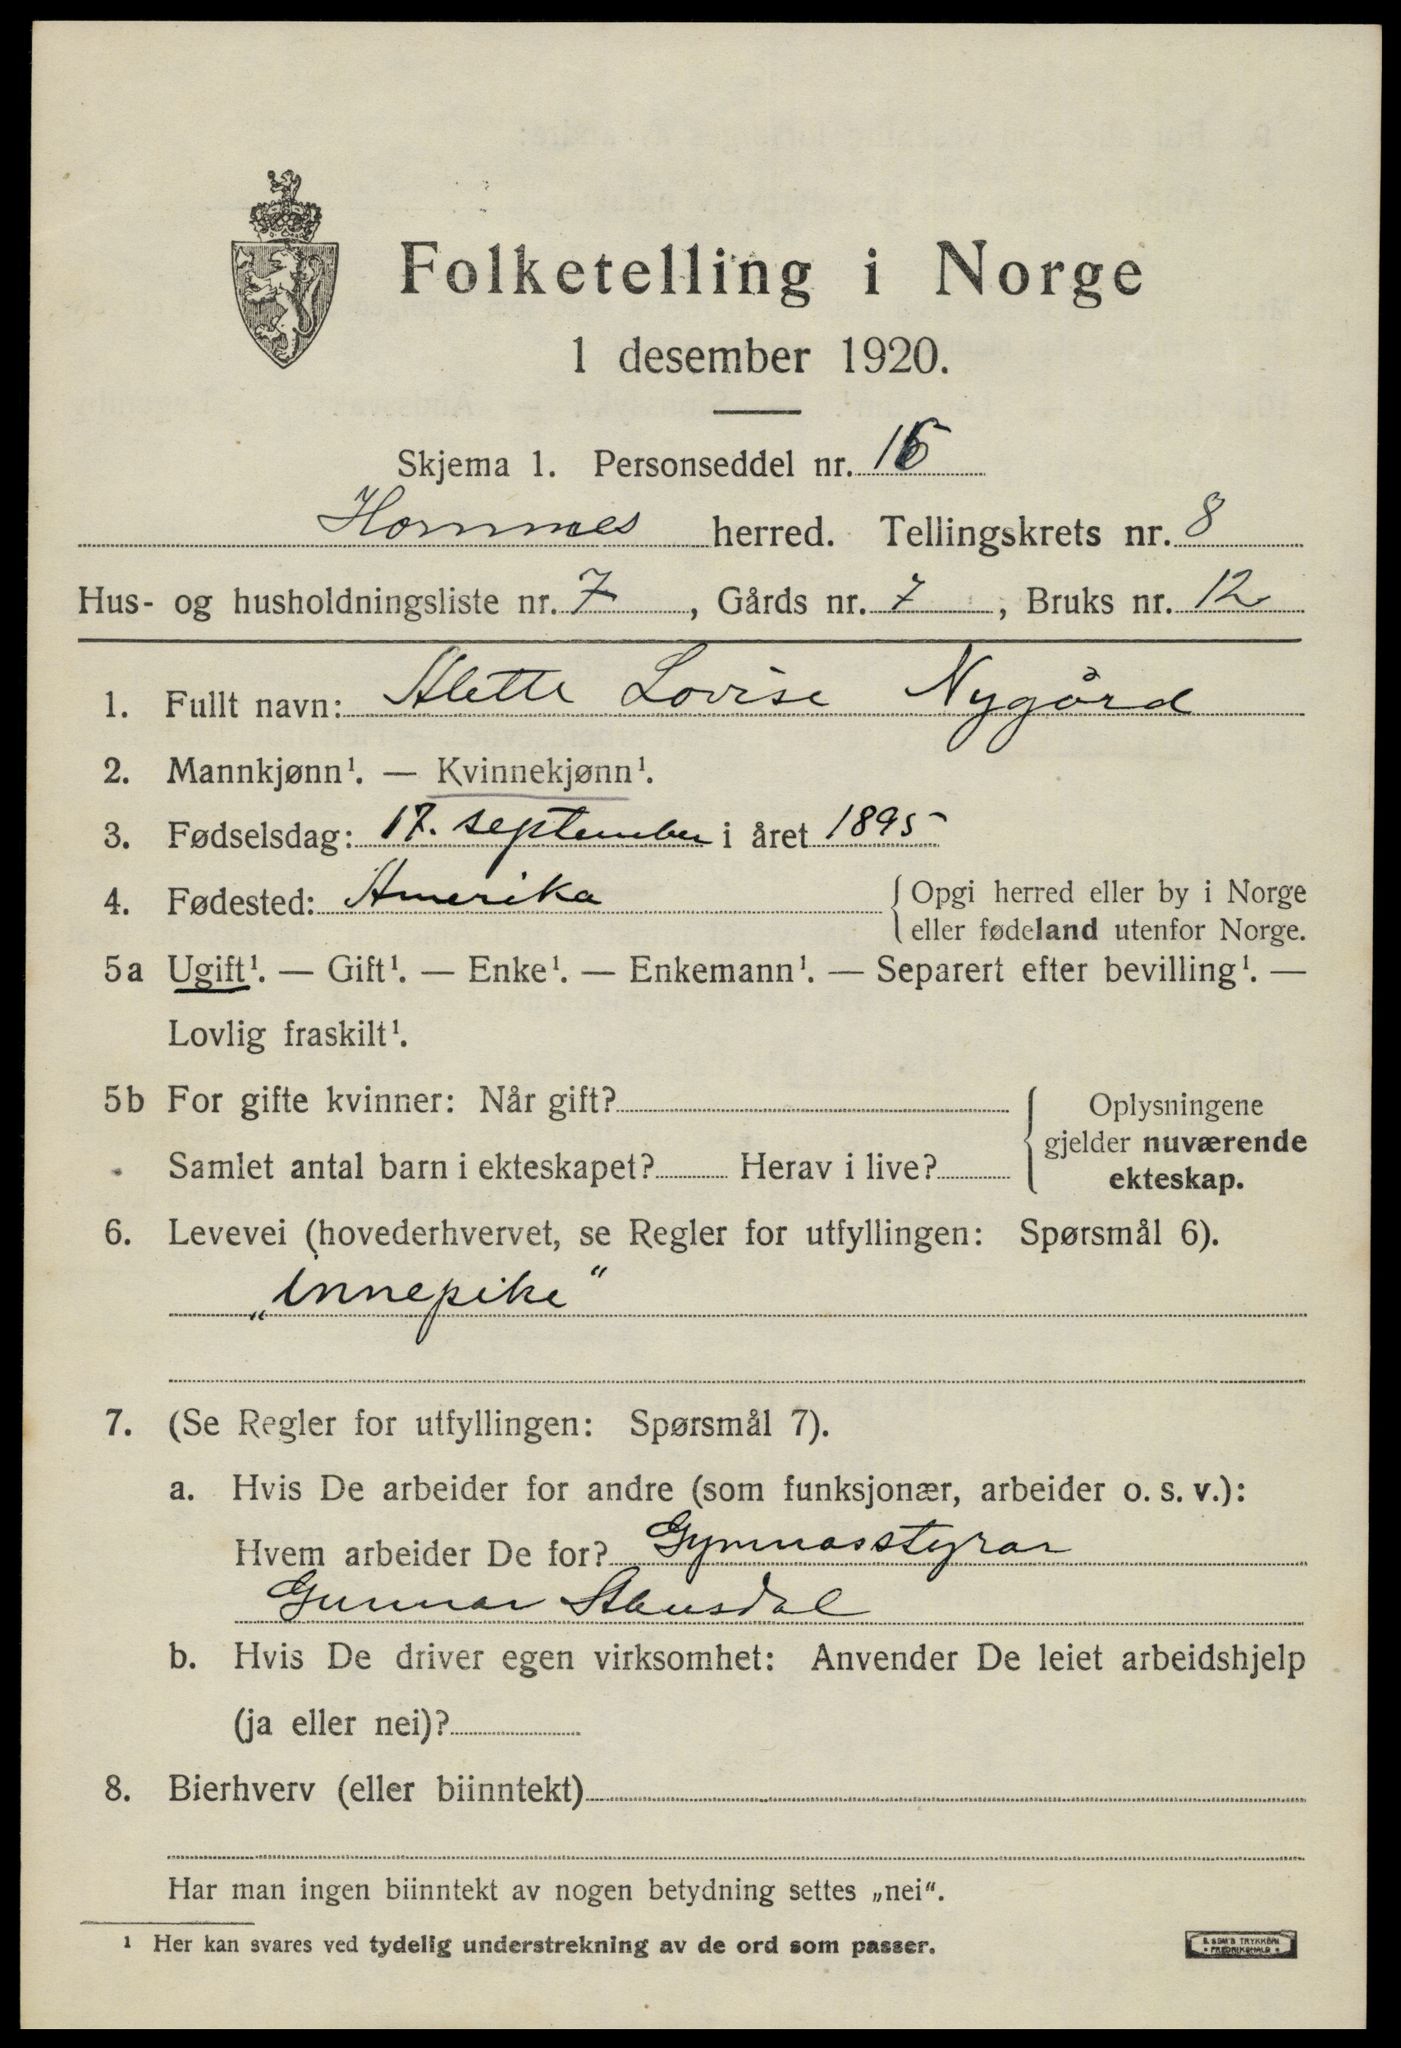 Folketelling i Norge
1 desember 1920.
Skjema 1. Personseddel nr. 16
Hornnes herred. Tellingskrets nr. 8
Hus- og husholdningsliste nr. 7, Gårds nr. 7, Bruks nr. 12
1. Fullt navn: Alette Lovise Nygård
2. Mannkjønn¹. — Kvinnekjønn¹.
3. Fødselsdag: 17. september i året 1895
4. Fødested: Amerika { Opgi herred eller by i Norge
eller fødeland utenfor Norge.
5a Ugift¹. — Gift¹. — Enke¹. — Enkemann¹. — Separert efter bevilling¹. —
Lovlig fraskilt¹.
5b For gifte kvinner: Når gift?
Samlet antal barn i ekteskapet? Herav i live?
Oplysningene
gjelder nuværende
ekteskap.
6. Levevei (hovederhvervet, se Regler for utfyllingen: Spørsmål 6).
„innepike“
7. (Se Regler for utfyllingen: Spørsmål 7).
a. Hvis De arbeider for andre (som funksjonær, arbeider o. s. v.):
Hvem arbeider De for? Gymnasstyrar
Gunnar
b. Hvis De driver egen virksomhet: Anvender De leiet arbeidshjelp
(ja eller nei)?
8. Bierhverv (eller biinntekt)
Har man ingen biinntekt av nogen betydning settes „nei“.
¹ Her kan svares ved tydelig understrekning av de ord som passer.